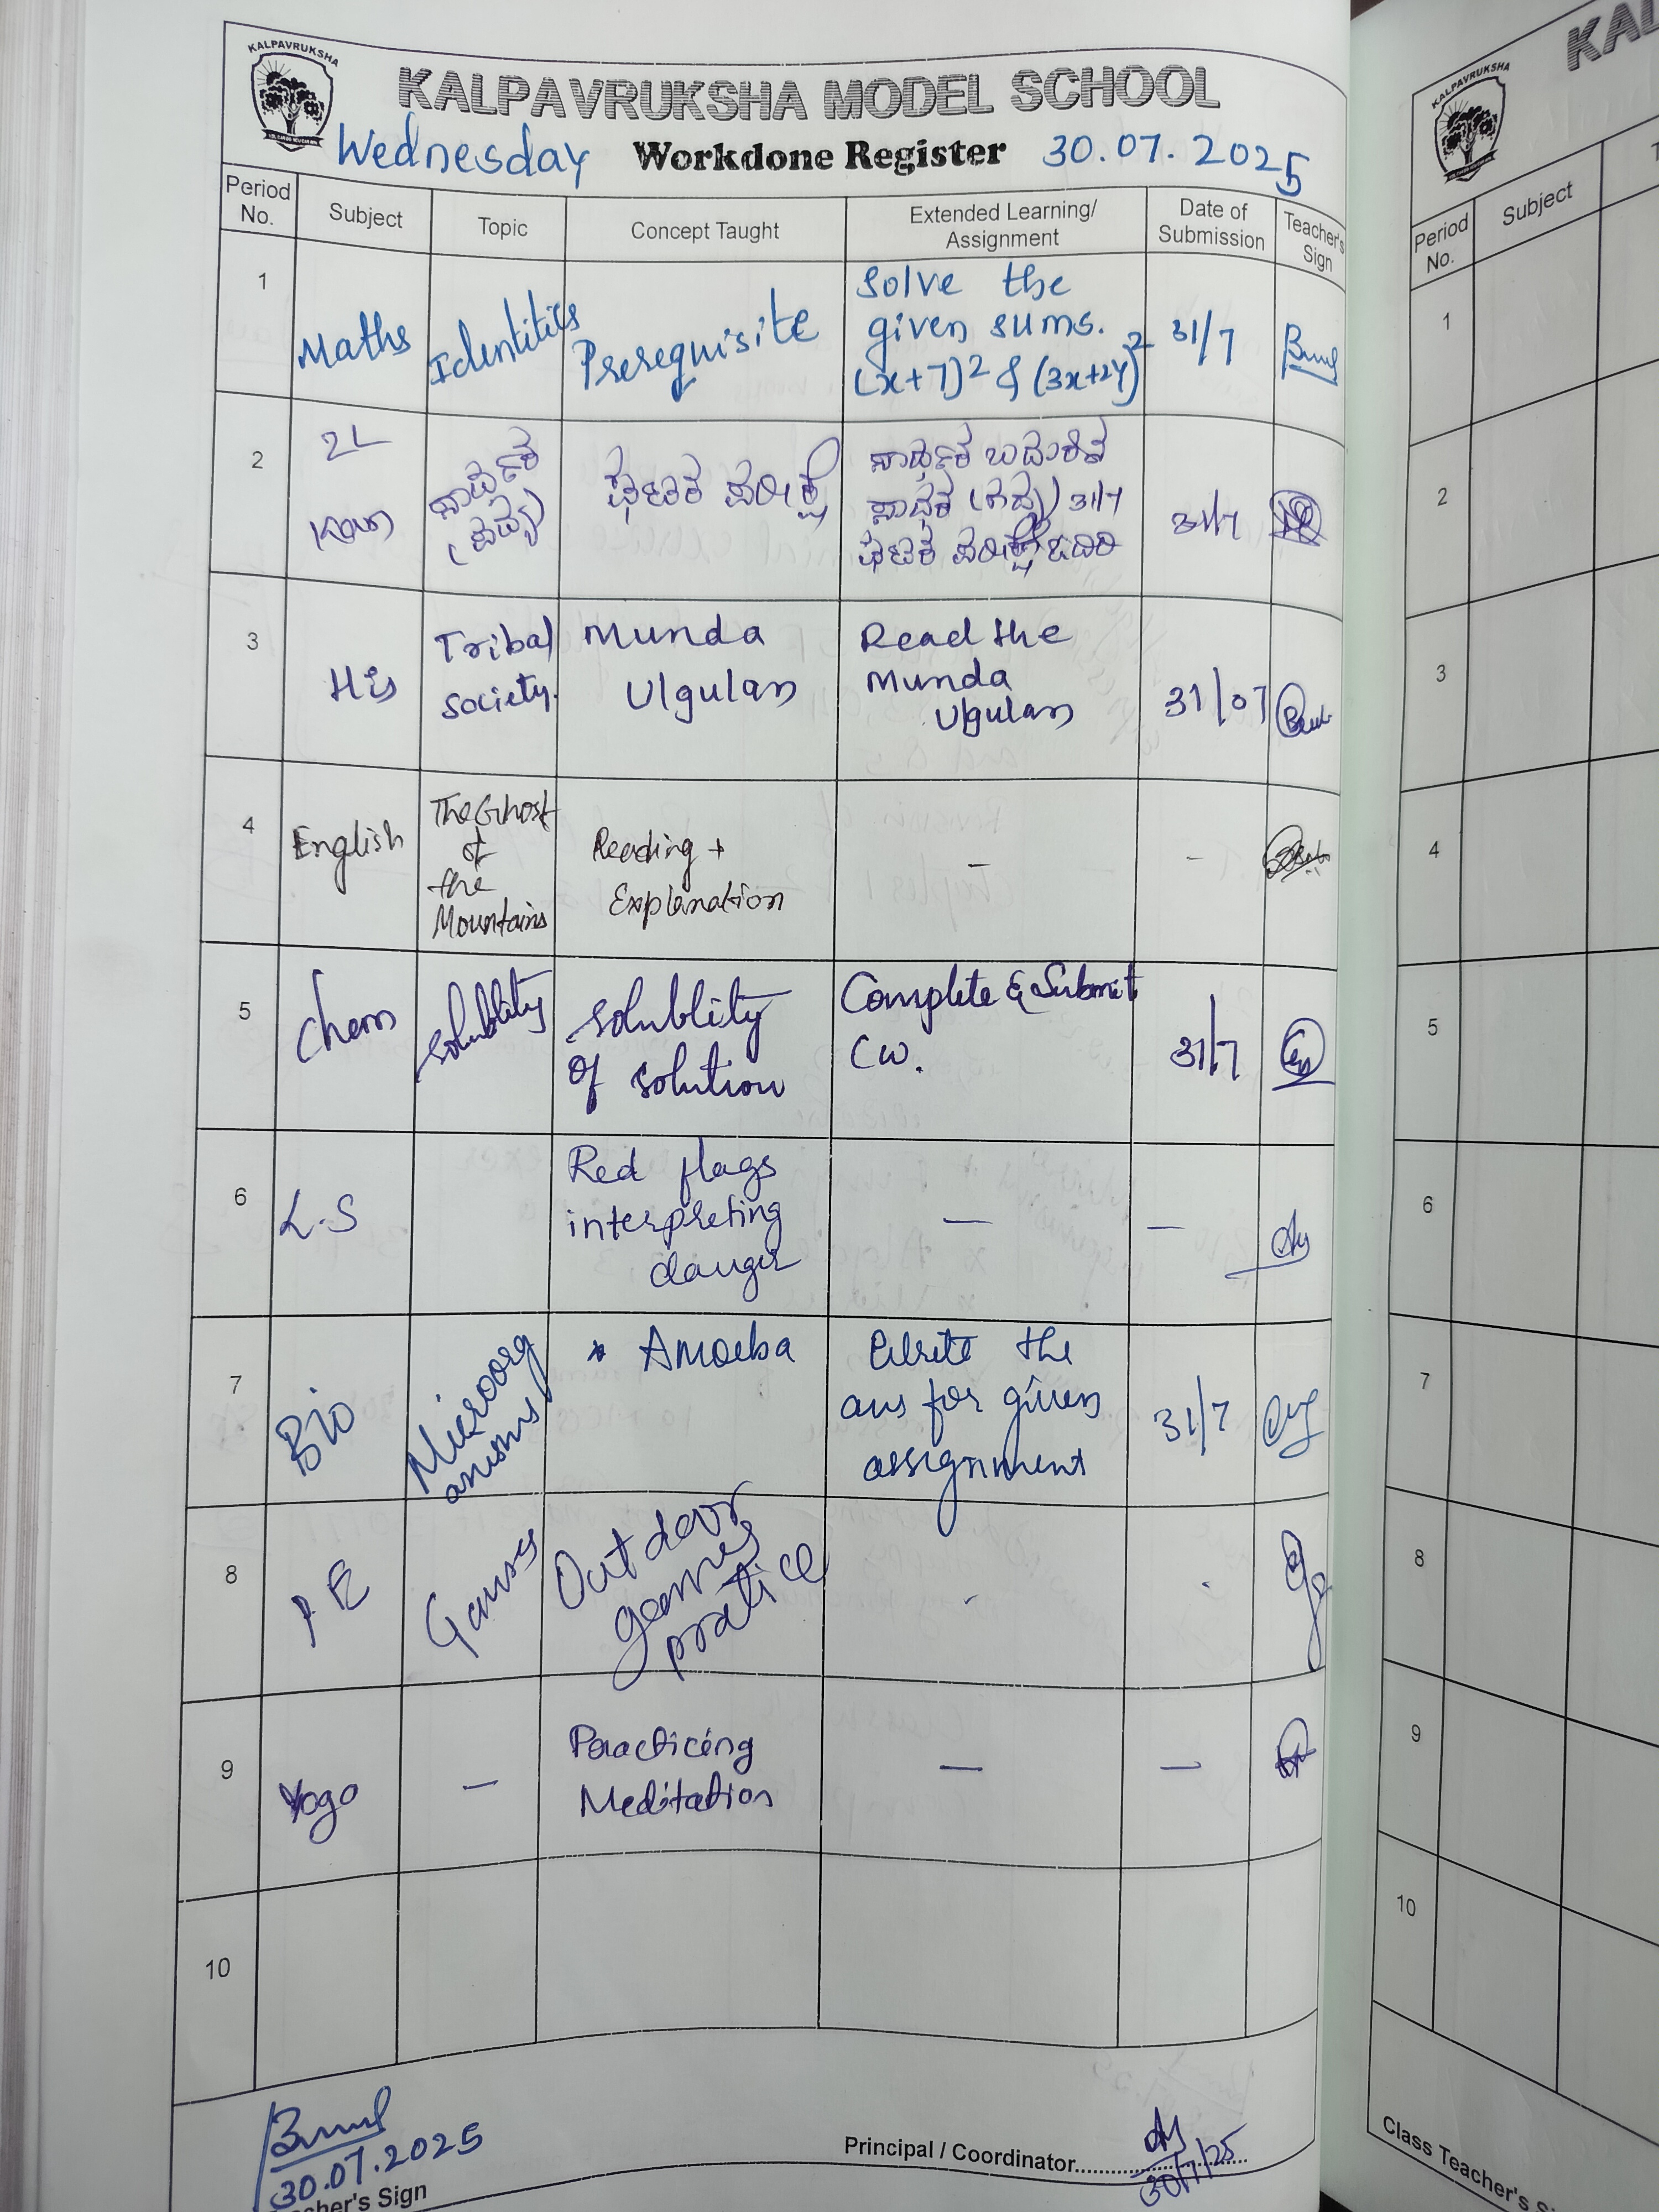 KALPAVRUKSHA
KALPAVRUKSHA MODEL SCHOOL
Wednesday Workdone Register 30.07.2025
Period No. Subject Topic Concept Taught Extended Learning/ Assignment Date of Submission Teacher's Sign
1 Maths Identities Prerequisite Solve the given sums. (x+7)² & (3x+2y)² 31/7
2 2L Kan ಘಟಕ ಪರೀಕ್ಷೆ (ಪದ್ಯ) 31/7 ಘಟಕ ಪರೀಕ್ಷೆ ಓದಿರಿ 31/7
3 His Tribal society. Munda Ulgulan Read the Munda Ulgulan 31/07
4 English The Ghost of the Mountains Reading + Explanation - -
5 Chem solublity solublity of solution Complete & Submit CW. 31/7
6 L.S Red flags interpreting danger — —
7 Bio Microorg anisms * Amoeba Write the ans for given assignment 31/7
8 P E Games Out door games pratice - -
9 Yoga — Practicing Meditation — —
10
30.07.2025
cher's Sign
Principal / Coordinator
30/7/25
KAL
KALPAVRUKSHA
Period No. Subject T
1
2
3
4
5
6
7
8
9
10
Class Teacher's Si